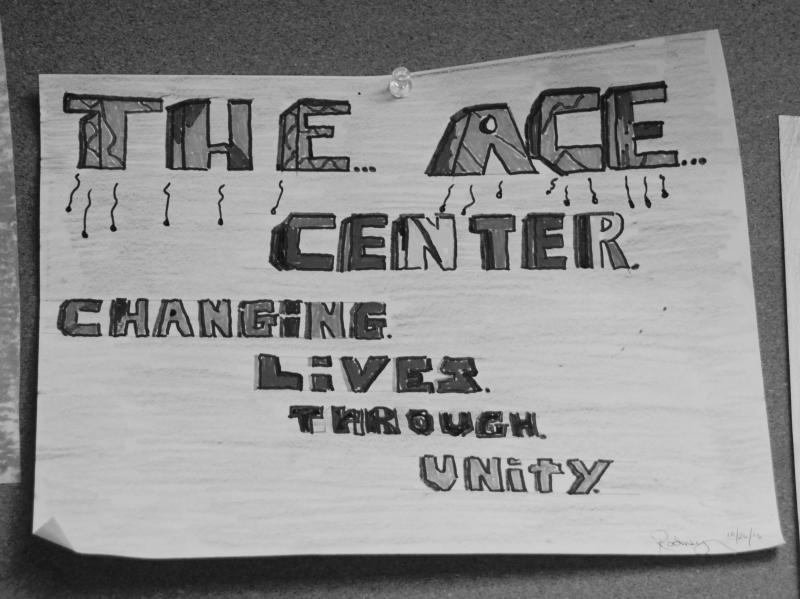 THE... ACE...
CENTER.
CHANGiNG.
LiVES.
THROUGH.
UNiTY.
Rodney